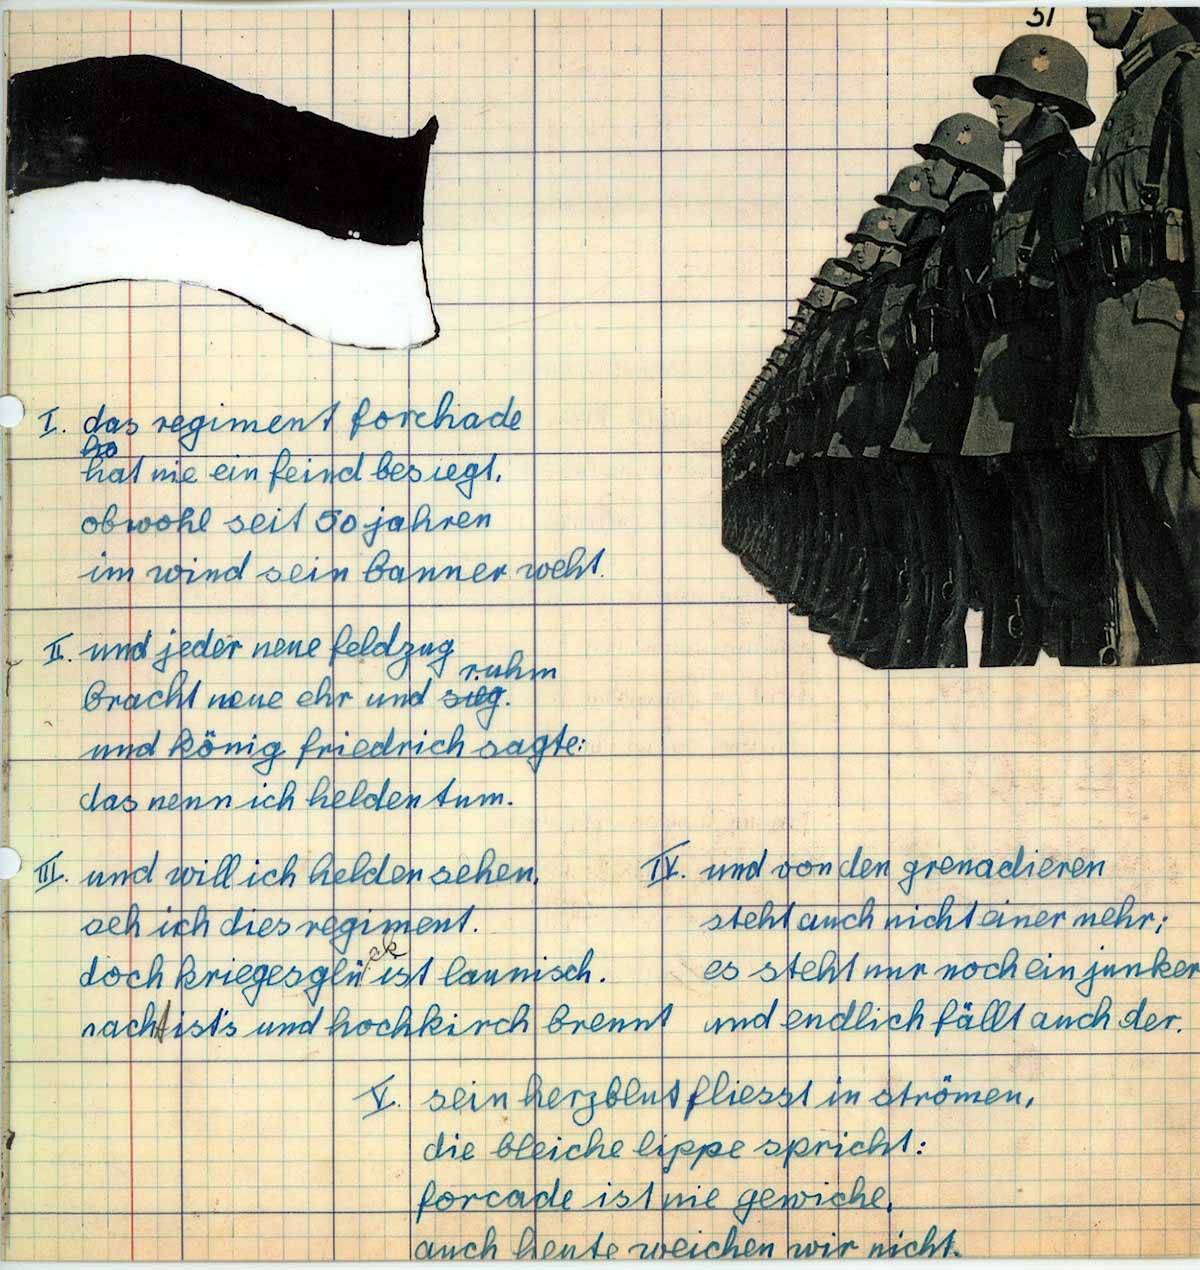 51
I. das regiment forchade
hat nie ein feind besiegt,
obwohl seit 50 jahren
im wind sein banner weht.
II. und jeder neue feldzug
bracht neue ehr und ruhm
und könig friedrich sagte:
das nenn ich heldentum.
III. und will ich helden sehen,
seh ich dies regiment.
doch kriegesglück ist launisch.
nacht ist's und hochkirch brennt
IV. und von den grenadieren
steht auch nicht einer mehr;
es steht nur noch ein junker
und endlich fällt auch der.
V. sein herzblut fliesst in strömen,
die bleiche lippe spricht:
forcade ist nie gewiche,
auch heute weichen wir nicht.